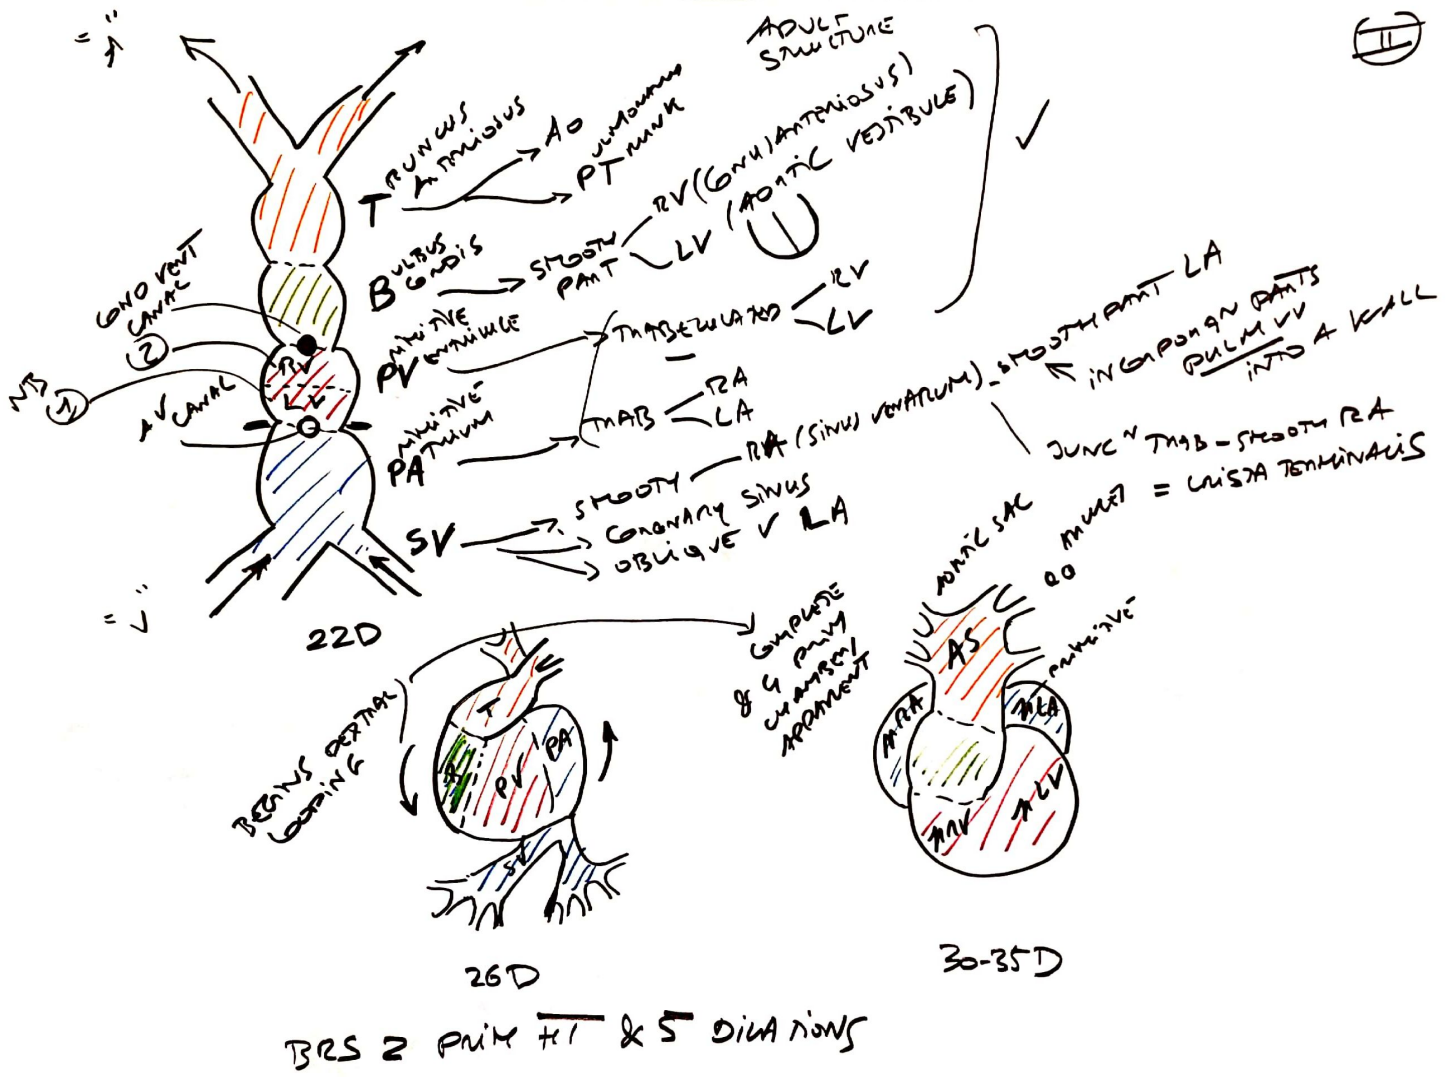 II
= "
ADULT
STRUCTURE
TRUNCUS
ARTERIOSUS
AO
PULMONARY
TRUNK
BULBUS
CORDIS
SMOOTH
PART
RV (CONUS ARTERIOSUS)
LV (AORTIC VESTIBULE)
CONO VENT
CANAL
2
NB 1
AV CANAL
RV
LV
PRIMITIVE
VENTRICLE
TRABECULATED
RV
LV
PRIMITIVE
ATRIUM
TRAB
RA
LA
SV
SMOOTH
RA (SINUS VENARUM)
CORONARY SINUS
OBLIQUE V LA
SMOOTH PART LA
INCORPORAN PARTS
PULM VV
INTO A WALL
JUNCN TRAB - SMOOTH RA
= CRISTA TERMINALIS
= "
22D
BEGINS DEXTRAL
LOOPING
COMPLETE
& 4 PRIM
CHAMBERS
APPARENT
T
PV
PA
SV
26D
AORTIC SAC
AS
PRIMITIVE
PRA
PLA
PRV
PLV
30-35D
BRS 2 PRIM HT & 5 DILATIONS